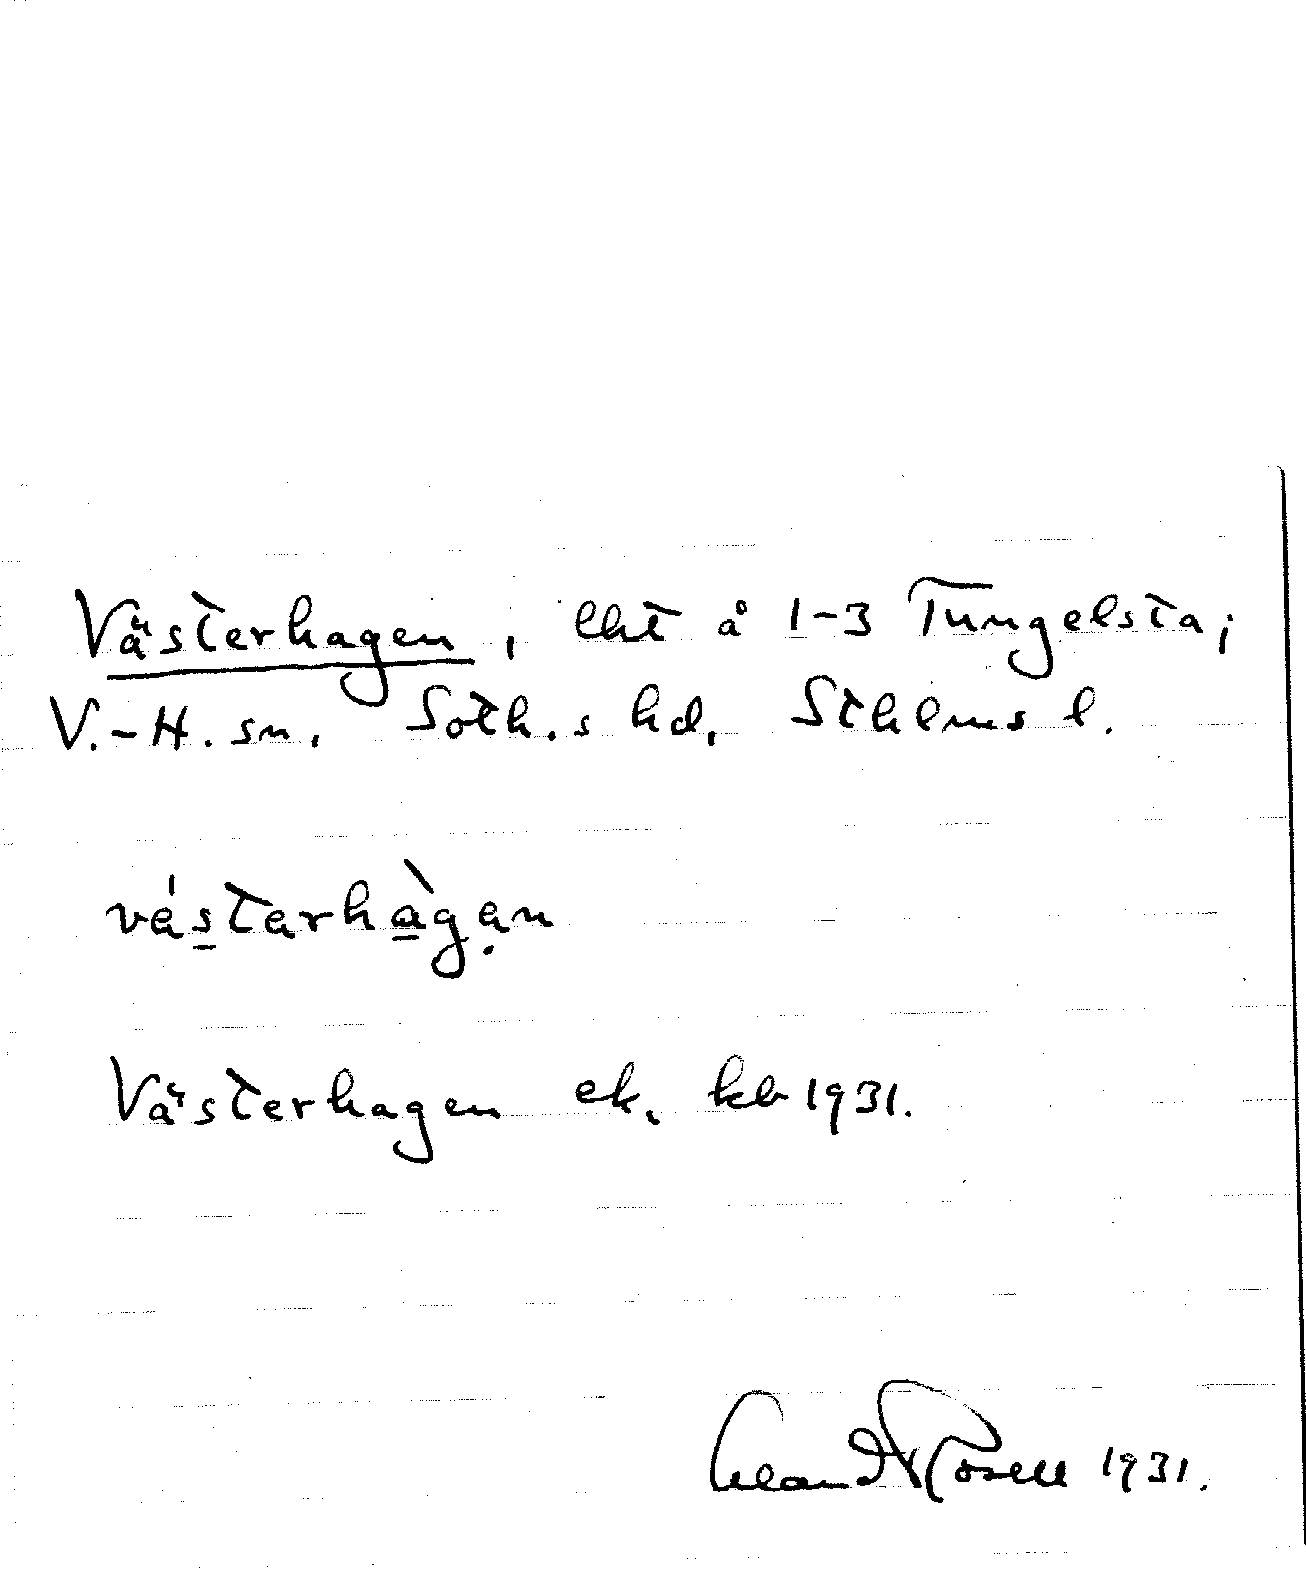 Västerhagen, lht å 1-3 Tungelsta;
V.-H. sn, Soth.s hd, Sthlms l.
vástarhàgan
Västerhagen ek. kb 1931.
Rosell 1931.